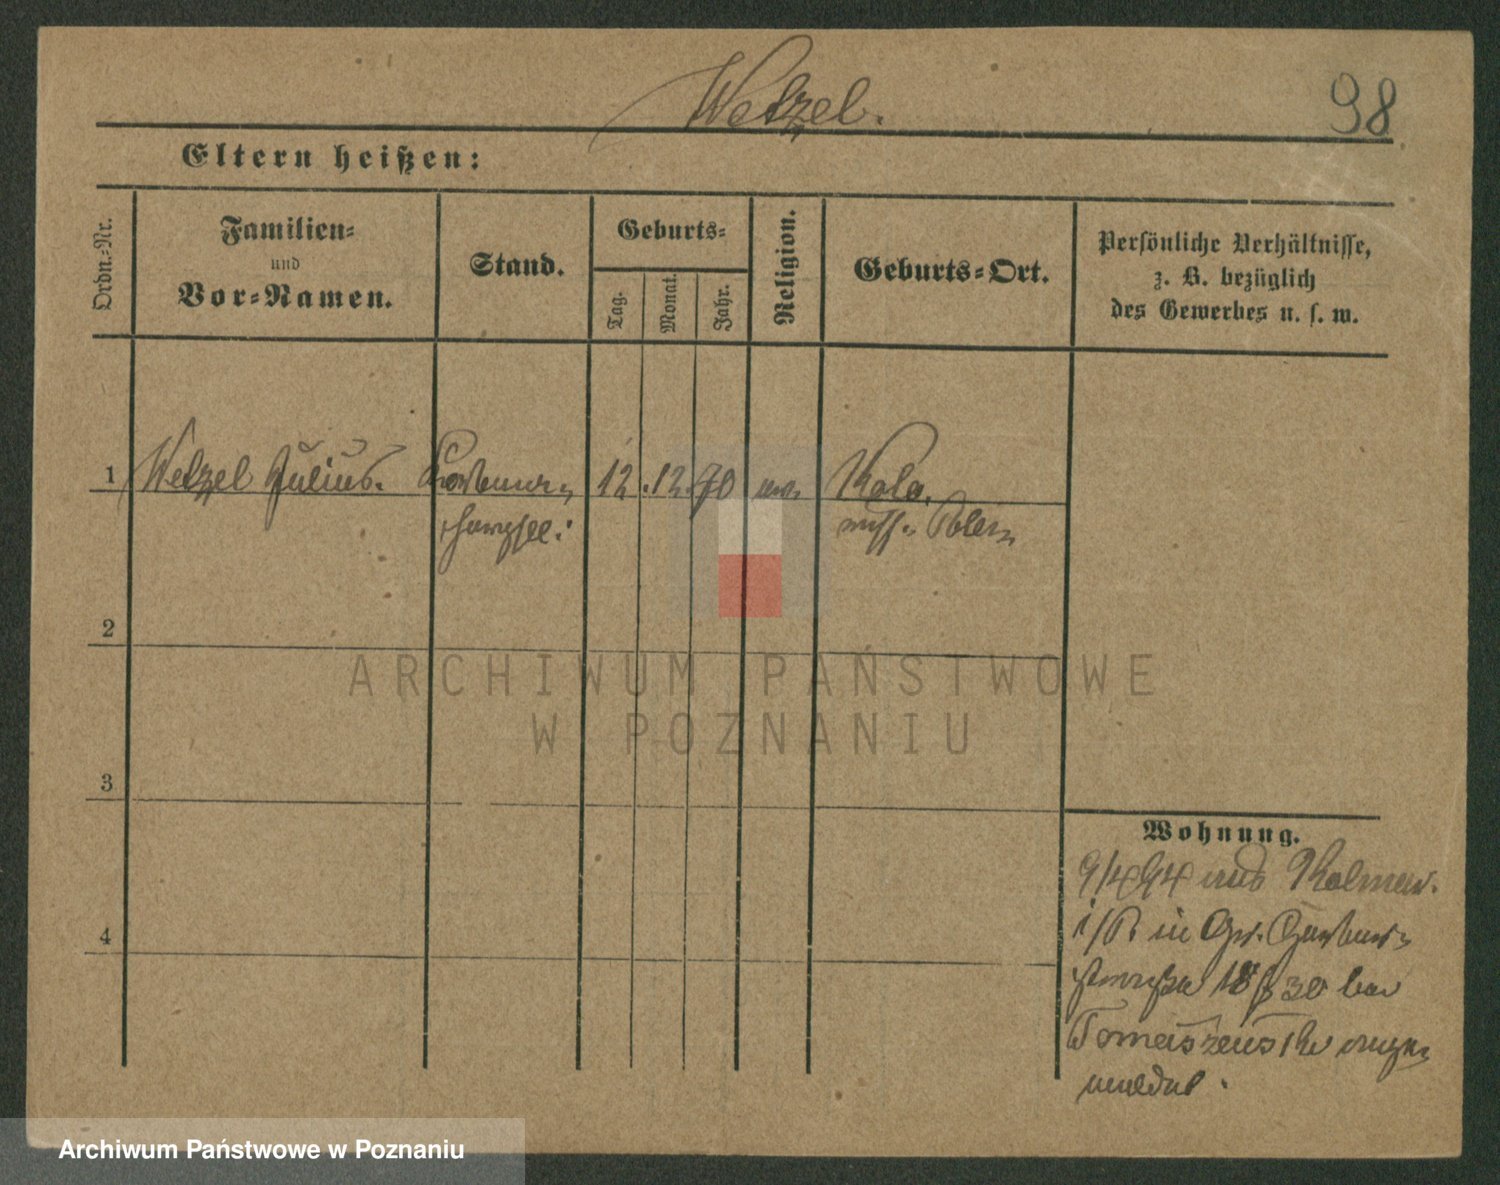 Wetzel.
98
Eltern heißen:
Ordn.-Nr.
Familien-
und
Vor-Namen.
Stand.
Geburts-
Tag.
Monat.
Jahr.
Religion.
Geburts-Ort.
Persönliche Verhältnisse,
z. B. bezüglich
des Gewerbes u. s. w.
1 Wetzel Julius. 12. 12. 70 ev. Kolo.
russ. Polen
2
3
4
ARCHIWUM PAŃSTWOWE
W POZNANIU
Wohnung.
9/4 94 aus Kolmar
i/P. in Gr. Gerber-
straße 18 b
Tomaszewski ange-
meldet.
Archiwum Państwowe w Poznaniu